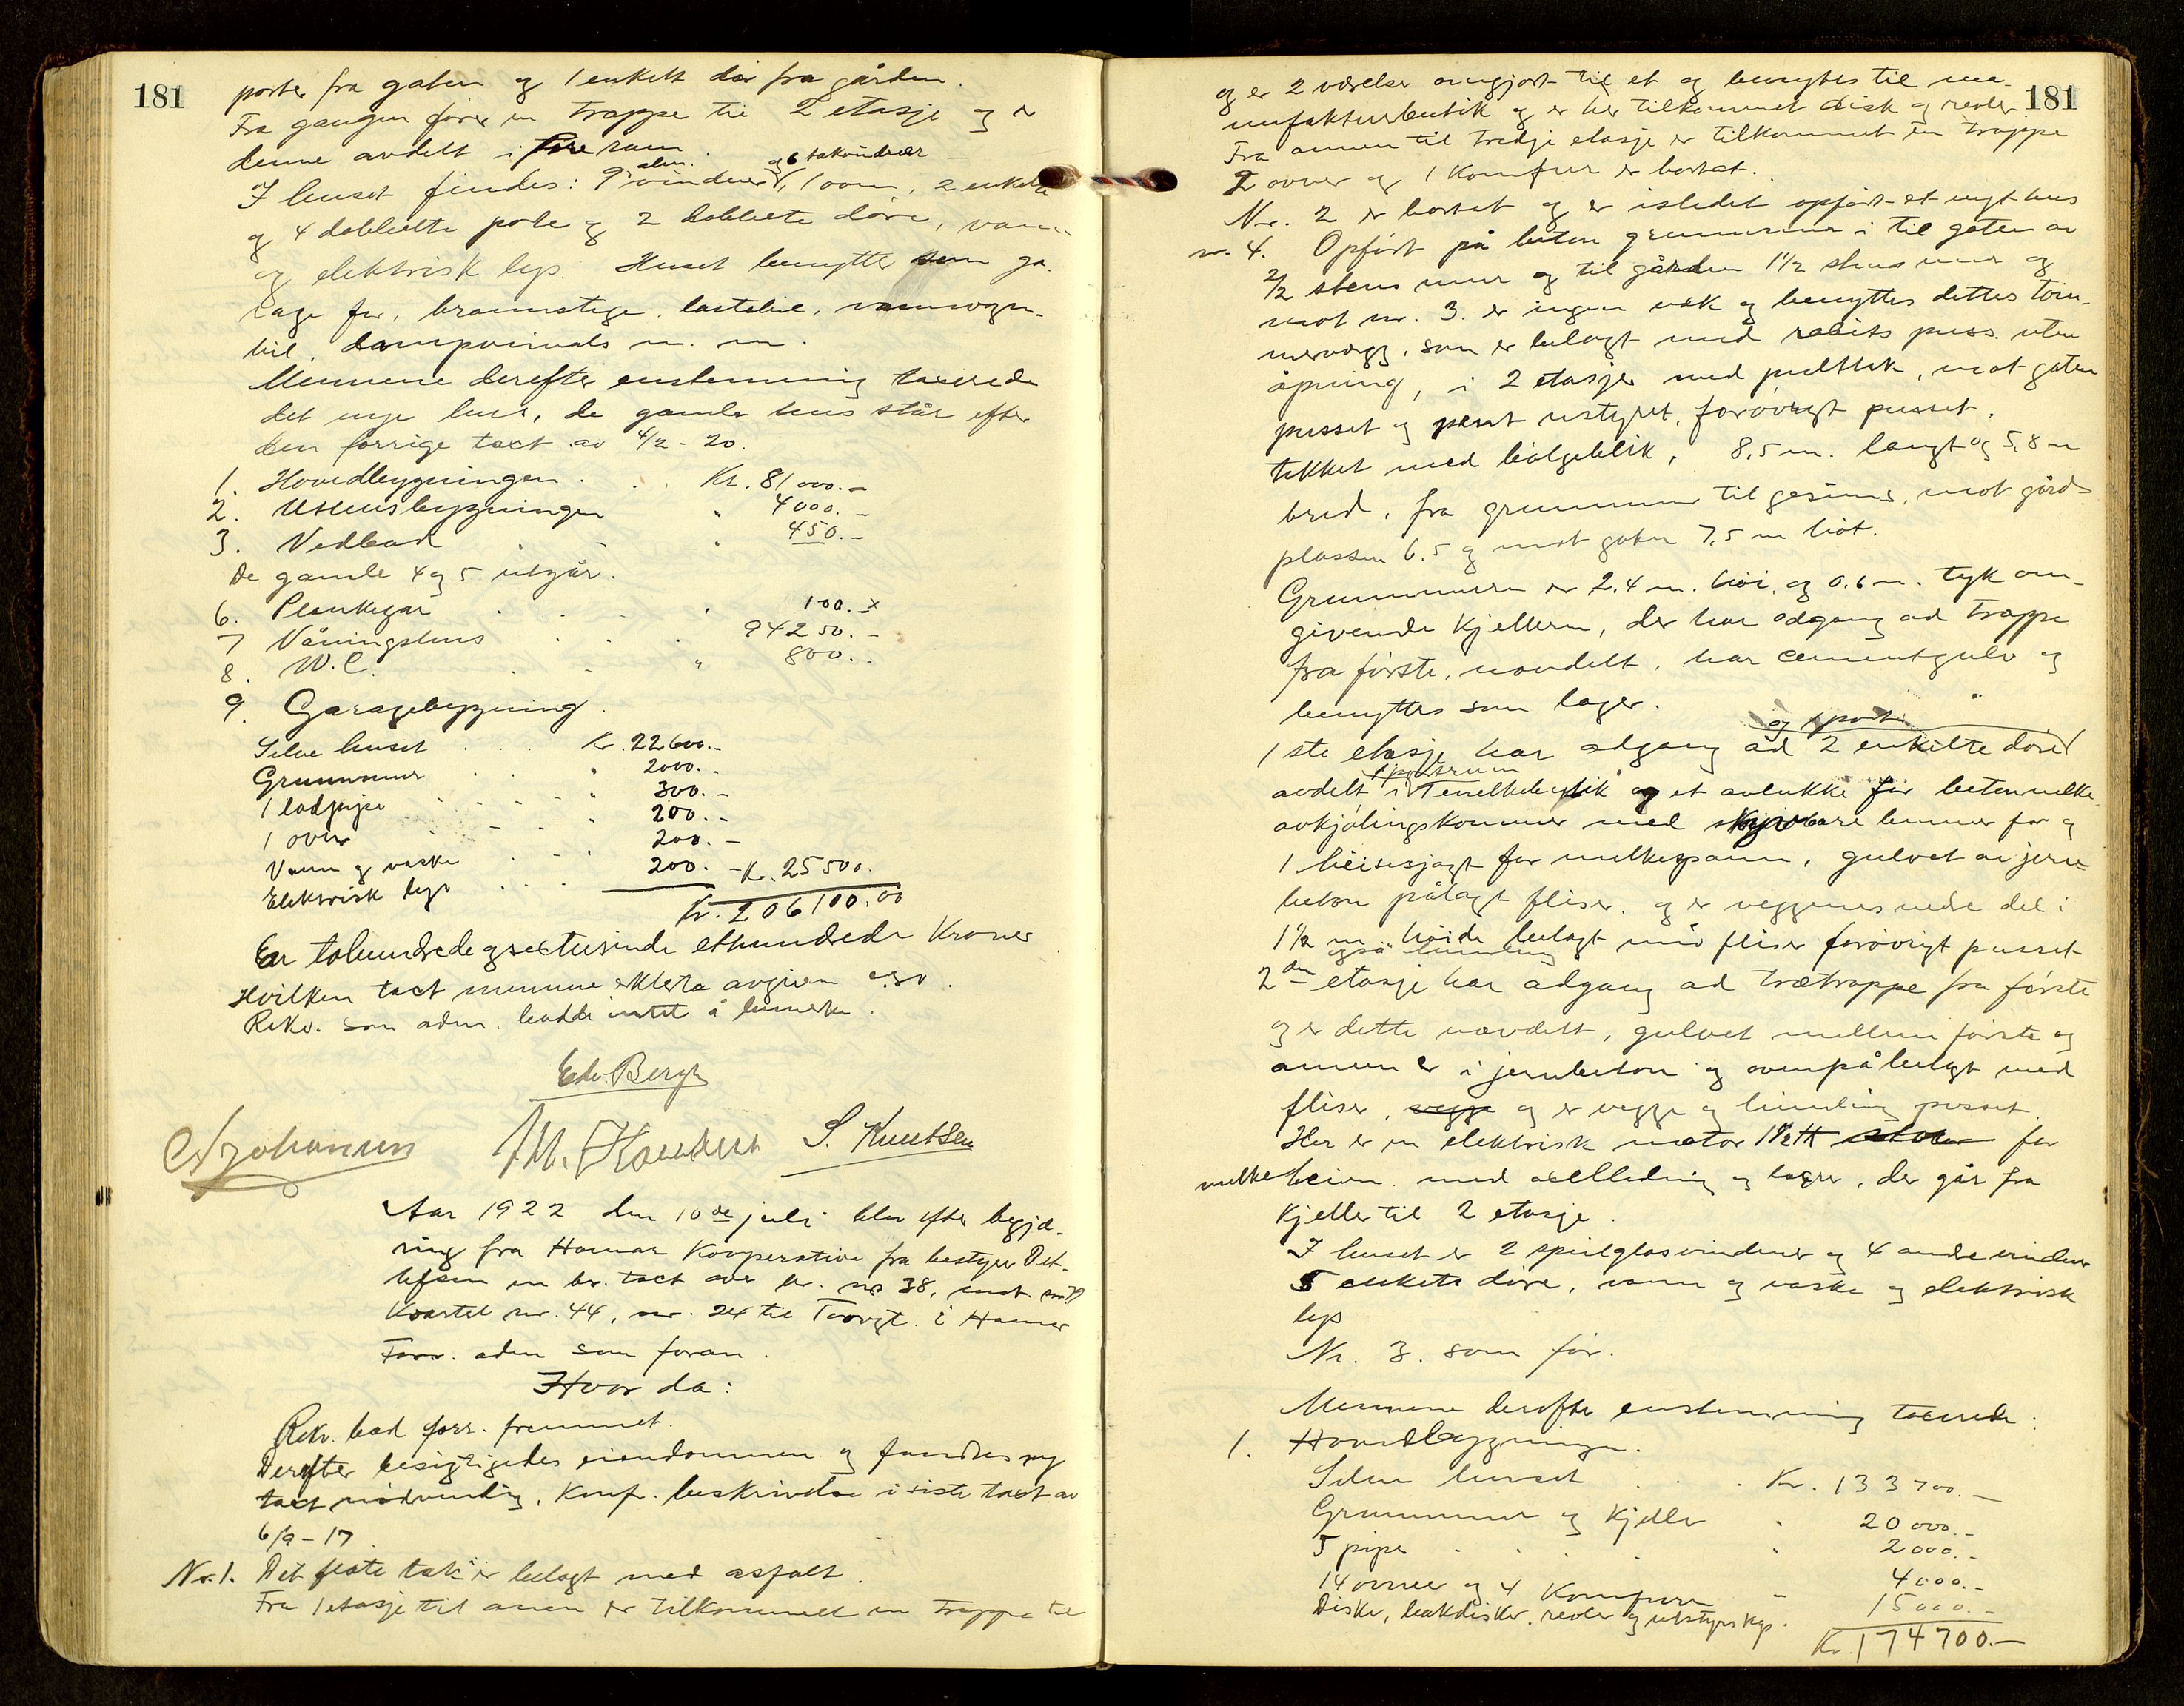 181
porter fra gaten og 1 enkelt dør fra gården.
Fra gangen fører en trappe til 2 etasje og er
denne avdelt i fire rum.
alm. og 6 takvinduer
I huset findes: 9 vinduer, 1 ovn, 2 enkelte
og 4 dobbelte porte og 2 dobbelte døre, vann
og elektrisk lys. Huset benyttes som ga-
rage for, brannstige, lastebil, vannvogn-
bil, m. m.
Mennene derefter enstemmig taxerede
det nye hus, de gamle hus står efter
den forrige taxt av 4/2 - 20.
1. Hovedbygningen . . Kr. 81000.-
2. Uthusbygningen " 4000.-
3. Vedbod " 450.-
De gamle 4 og 5 utgår.
6. Plankegar . . . " 100.-
7 Våningshus . . . 94250.-
8. W.C. . . " 800.-
9. Garagebygning.
Selve huset . . . Kr. 22600.-
Grunnmur . . " 2000.-
1 lodpipe . . . " 300.-
1 ovn . . . " 200.-
Vann og vaske . . . 200.-
Elektrisk lys . . . . 200.- Kr. 25500.
Kr. 206100.00
Er tohundredeogsextusinde ethundrede Kroner
Hvilken taxt mennene erklerte avgiven o.s.v.
Rekv. som adm. hadde intet å bemerke.
Edv. Bergh
Johansen S. Knutsen
Aar 1922 den 10de juli blev efter begjæ-
ring fra Hamar Kooperative fra bestyrer Det-
lefsen en br. taxt over br. no 38,
Kvartal nr. 44, nr. 24 til Torvgt. i Hamar
Forr. adm som foran.
Hvor da:
Rekv. bad forr. fremmet.
Derefter besigtigedes eiendommen og fandtes ny
taxt nødvendig. Konf. beskrivelse i siste taxt av
6/9 - 17.
Nr. 1. Det flate tak er belagt med asfalt.
Fra 1 etasje til annen er tilkommet en trappe til
181
og er 2 værelser omgjort til et og benyttes til ma-
nufakturbutik og er her tilkommet disk og reoler
Fra annen til tredje etasje er tilkommet en trappe
2 ovner og 1 Komfur er bortat.
Nr. 2 er bortat og er istedet opført et nyt hus
nr. 4. Opført på beton grunnmur i til gaten av
2/2 stens mur og til gården 1 1/2 stens mur og
mot nr. 3. er ingen væk og benyttes dettes tøm-
mervægg, som er belagt med rabits puss. uten
åpning, i 2 etasjer med pulttak, mot gaten
pusset og pent utstyret, forøvrigt pusset.
tekket med bølgeblik, 8,5 m. langt og 5,8 m
bred, fra grunnmur til gesims, mot gårds
plassen 6.5 og mot gaten 7,5 m høit.
Grunnmuren er 2,4 m. høi, og 0.6 m. tyk om-
givende Kjelleren, der har adgang ad trappe
fra første, uavdelt, har cementgulv og
benyttes som lager.
og 1 port
1ste etasje har adgang ad 2 enkelte døre
avdelt i 1 melkebutik og et avlukke for
avkjølingskammer med lemmer for og
1 heisesjagt for melkespann, gulvet av jern-
beton pålagt fliser. og er veggenes nedre del i
1 1/2 m høide belagt med fliser forøvrigt pusset
også himling
2den etasje har adgang ad trætrappe fra første
og er dette uavdelt, gulvet mellem første og
annen er i jernbeton og ovenpå belagt med
fliser, og er vegge og himling pusset.
Her er en elektrisk motor for
melkeheisen. med axelledning og lagre, der går fra
Kjeller til 2 etasje.
I huset er 2 speilglasvinduer og 4 andre vinduer
5 enkelte døre, vann og vaske og elektrisk
lys
Nr. 3. som før.
Mennene derefter enstemmig taxerede:
1. Hovedbygningen.
Selve huset . . Kr. 133700.-
Grunnmur og Kjeller " 20000.-
5 piper . . . . " 2000.-
14 ovner og 4 Komfurer " 4000.-
Diske, bakdisker, reoler og utstyrskap. 15000.-
Kr. 174700.-